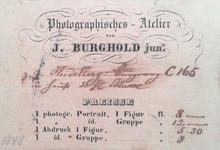 Photographisches - Atelier
von
J. BURGHOLD jun:
C 165
PREISSE
1 photogr. Portrait, 1 Figur fl. 8 —
1 id. Gruppe „ 12 —
1 Abdruck 1 Figur, „ 5.30
1 id. Gruppe, „ 8
1848